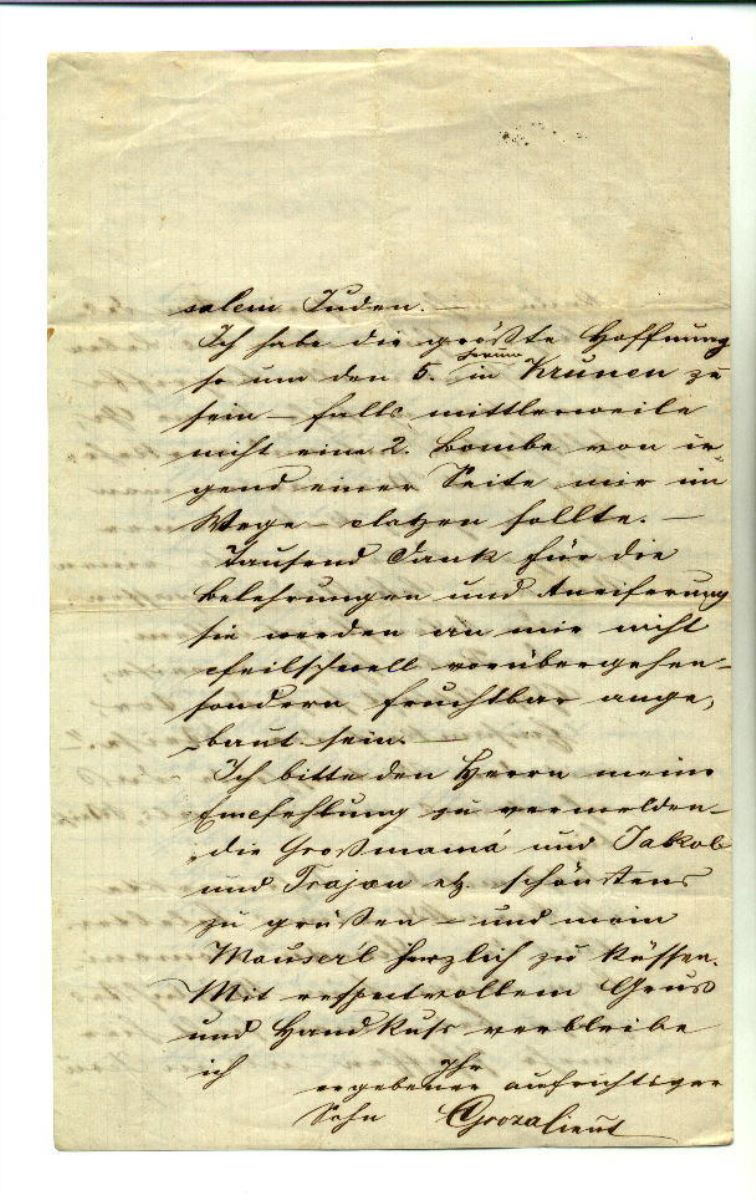 salem Juden. —
Ich habe die größte Hoffnung
so um den 5. in Krunen zu
sein — falls mittlerweile
nicht eine 2. Bombe von ir-
gend einer Seite mir im
Wege — platzen sollte. —
Tausend Dank für die
Belehrungen und Aneiferung
sie werden an mir nicht
pfeilschnell vorübergehen —
sondern fruchtbar ange-
baut sein. —
Ich bitte den Herrn meine
Empfehlung zu vermelden —
die Großmamá und Jakob
und Trajan etz. schönstens
zu grüßen — und mein
Mauserl herzlich zu küssen.
Mit respectvollem Gruss
und Handkuss verbleibe
ich Ihr
ergebener aufrichtiger
Sohn Groza Lieut